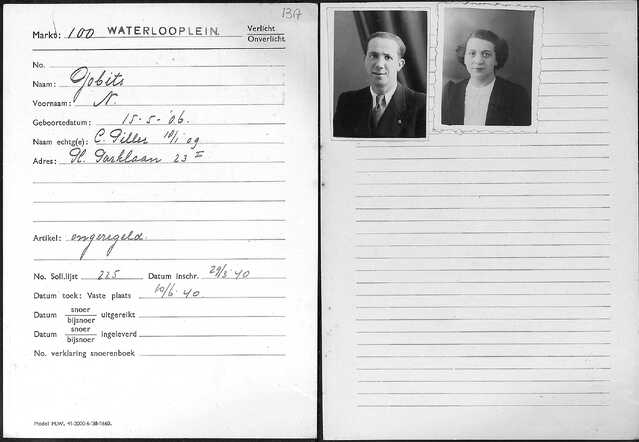 13A
Markt: 100 WATERLOOPLEIN. Verlicht
Onverlicht.
No.
Naam: Gobits
Voornaam: N.
Geboortedatum: 15-5-'06.
Naam echtg(e): C. Piller 10/1 09
Adres: Pl. Parklaan 23 II
Artikel: ongeregeld.
No. Soll.lijst 225 Datum inschr. 29/3 '40
Datum toek: Vaste plaats 10/6 - 40.
Datum snoer/bijsnoer uitgereikt
Datum snoer/bijsnoer ingeleverd
No. verklaring snoerenboek
Model M.W. 41-2000-6-'38-1660.